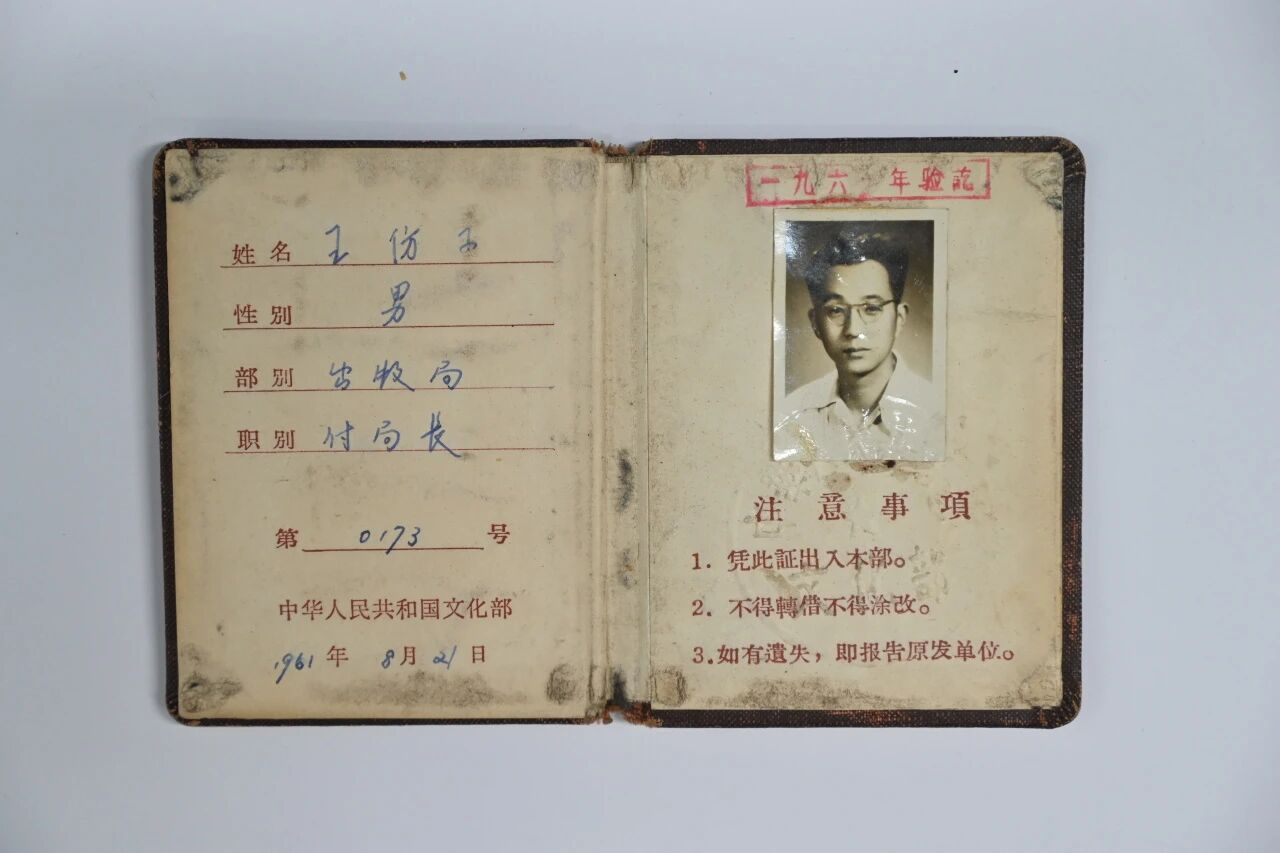 姓名 王仿子
性别 男
部别 出版局
职别 付局長
第 0173 号
中华人民共和国文化部
1961 年 8 月 21 日
一九六 年验訖
注意事項
1. 凭此証出入本部。
2. 不得轉借不得涂改。
3. 如有遺失，即报告原发单位。